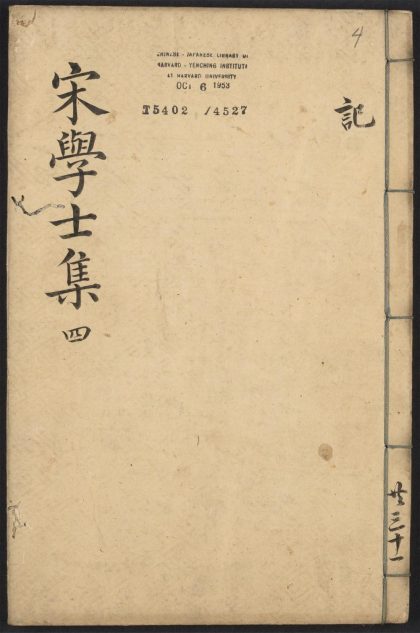 4
記
CHINESE - JAPANESE LIBRARY OF
HARVARD - YENCHING INSTITUTE
AT HARVARD UNIVERSITY
OCT 6 1953
T5402 /4527
宋學士集 四
共三十一